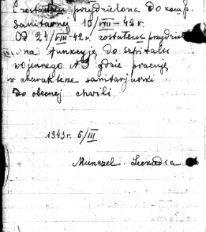 zostałam przydzielona do komp.
sanitarnej 10/VIII – 42 r.
Od 24/VIII 42 r. zostałam przydziel
na funkcję do szpitala
wojennego gdzie pracuję
w charakterze sanitariuszki
do obecnej chwili
1943 r. 6/III